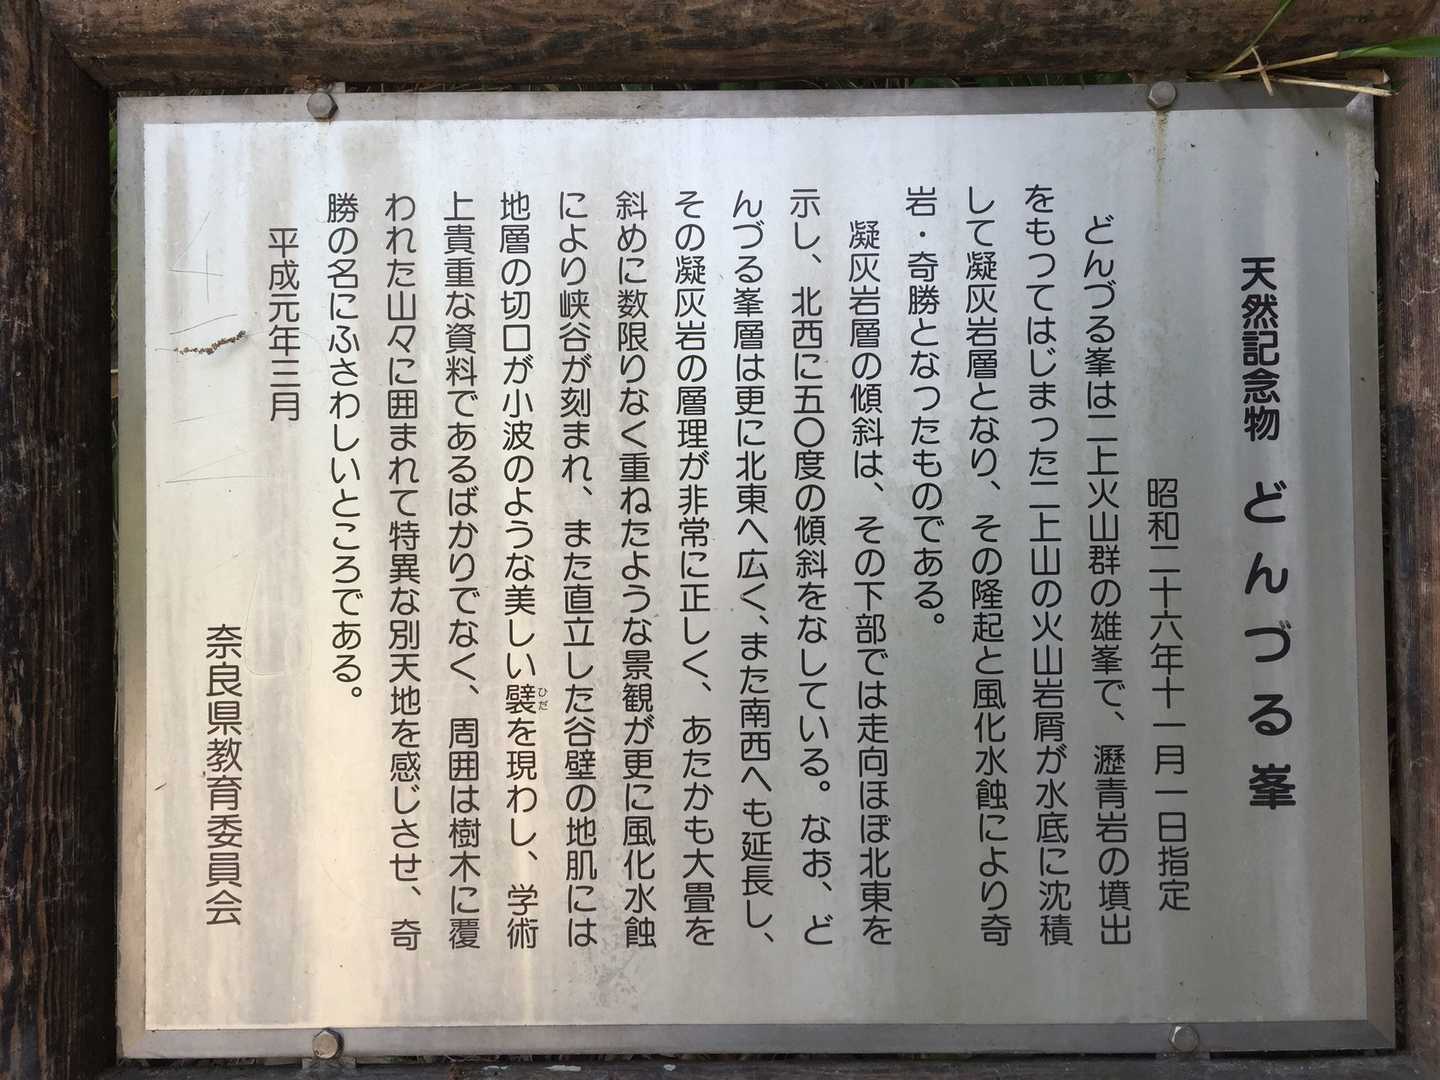 天然記念物 どんづる峯
昭和二十六年十一月一日指定
どんづる峯は二上火山群の雄峯で、瀝青岩の墳出
をもつてはじまった二上山の火山岩屑が水底に沈積
して凝灰岩層となり、その隆起と風化水蝕により奇
岩・奇勝となったものである。
凝灰岩層の傾斜は、その下部では走向ほぼ北東を
示し、北西に五〇度の傾斜をなしている。なお、ど
んづる峯層は更に北東へ広く、また南西へも延長し、
その凝灰岩の層理が非常に正しく、あたかも大畳を
斜めに数限りなく重ねたような景観が更に風化水蝕
により峡谷が刻まれ、また直立した谷壁の地肌には
地層の切口が小波のような美しい襞ひだを現わし、学術
上貴重な資料であるばかりでなく、周囲は樹木に覆
われた山々に囲まれて特異な別天地を感じさせ、奇
勝の名にふさわしいところである。
平成元年三月
奈良県教育委員会